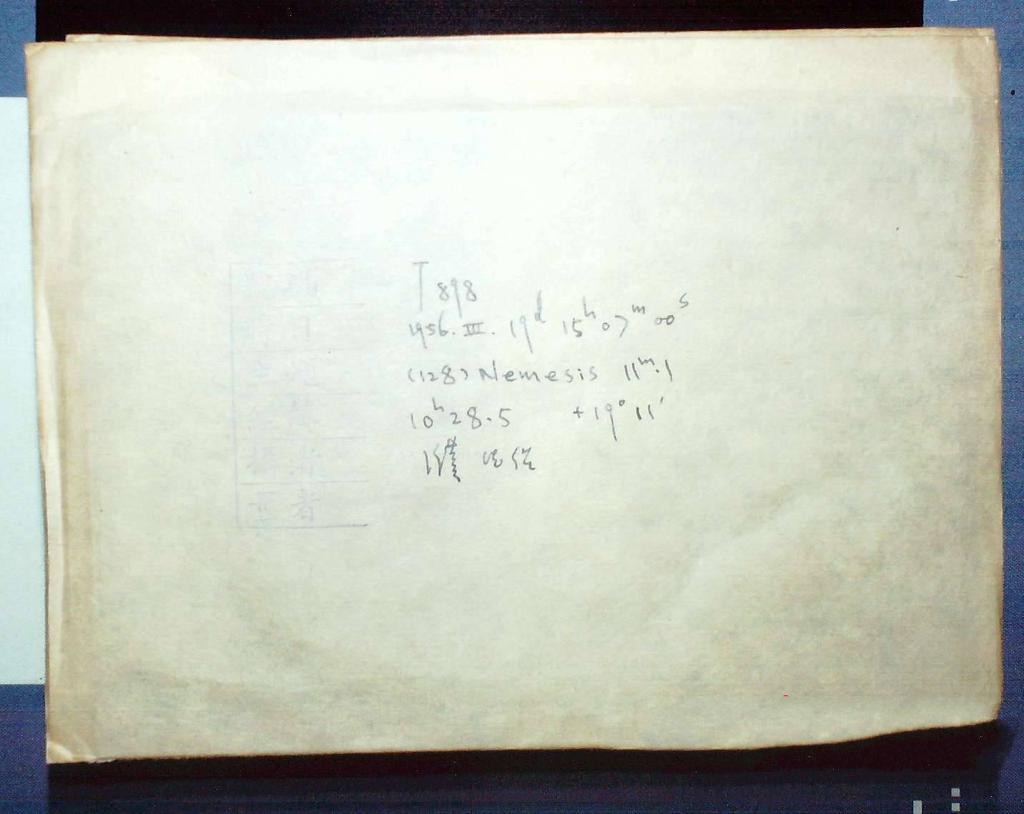 T 898
1956. III. 19d 15h 07m 00s
(128) Nemesis 11m.1
10h 28.5 +19° 11'